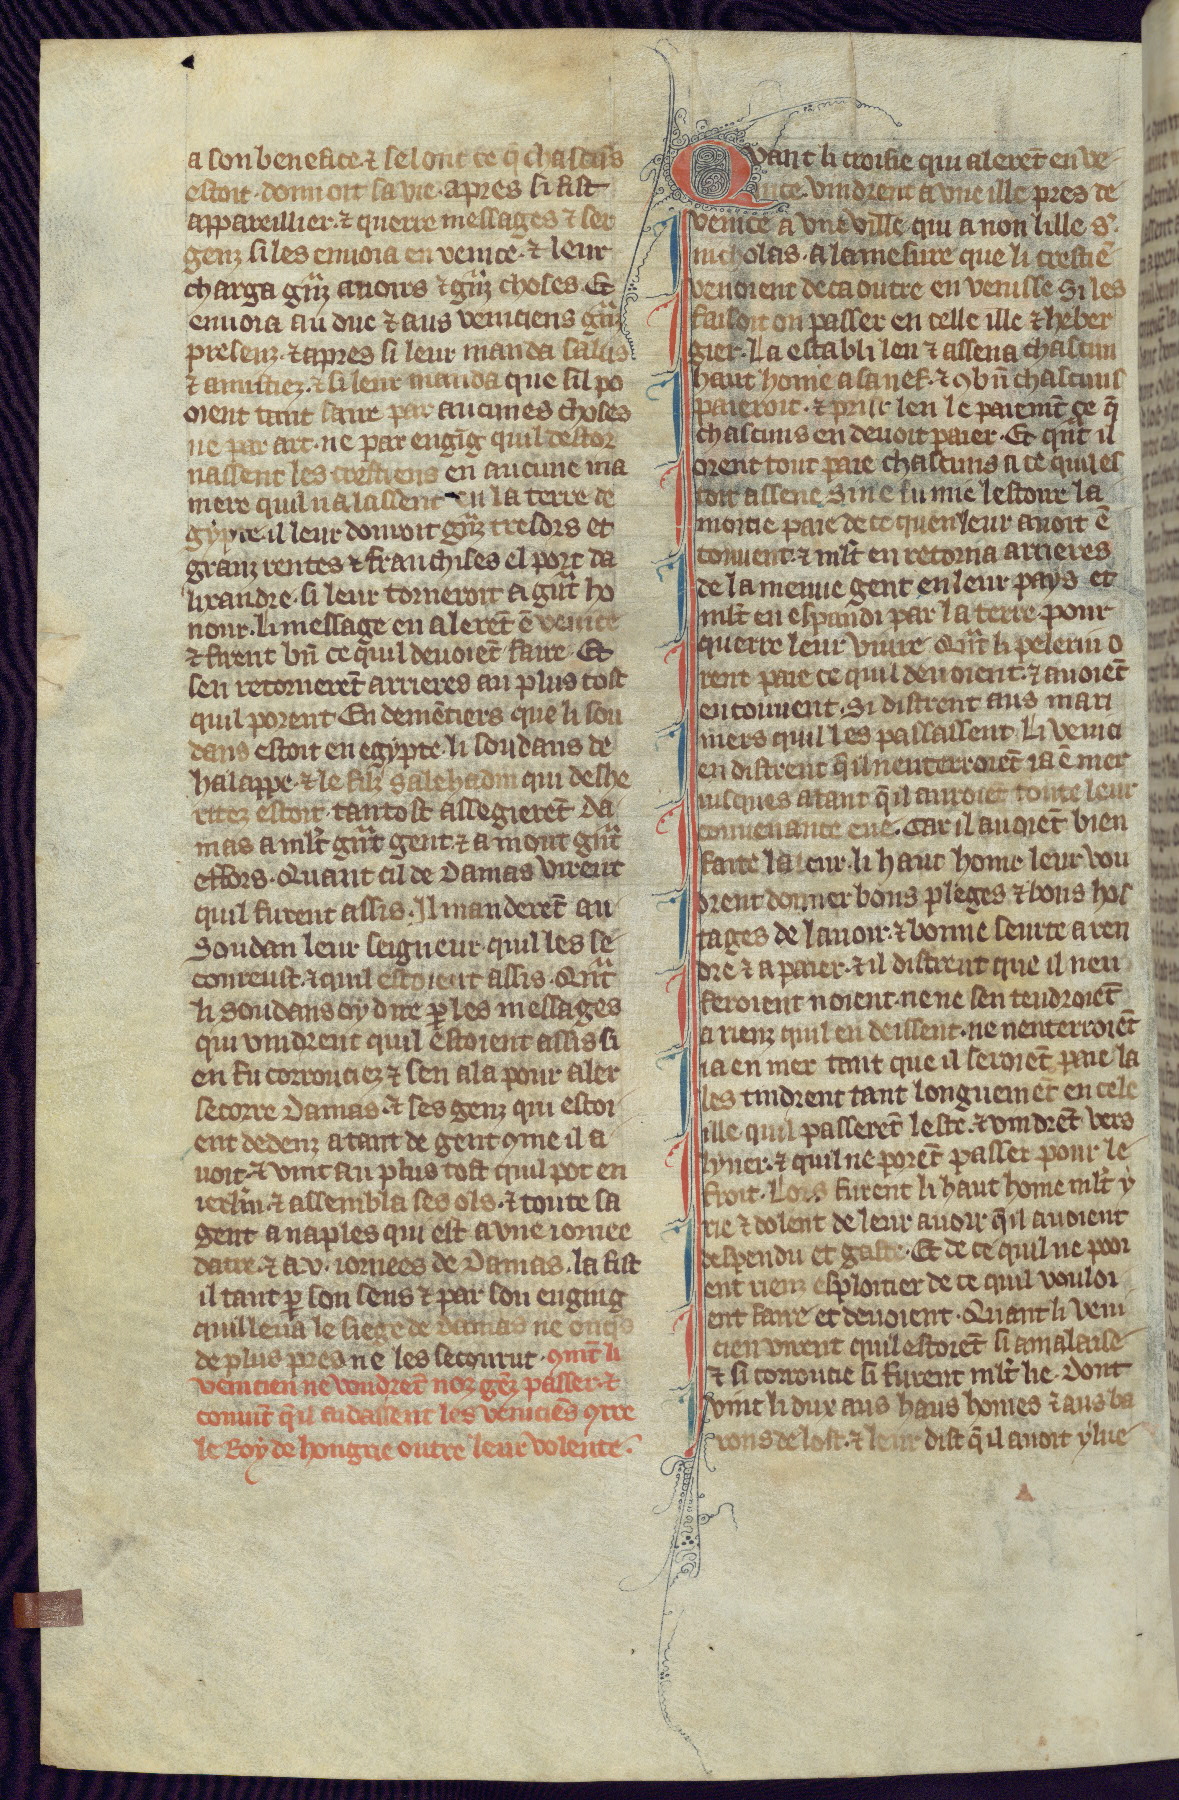 a son benefice ⁊ selonc ce q̄ chascūs
estoit donnoit sa vie. apres si fist
appareillier. ⁊ querre messages ⁊ ser
genz si les enuoia en venice. ⁊ leur
charga gn̄z auoirs ⁊ gn̄z choses. Et
enuoia au duc ⁊ aus veniciens gn̄z
presenz. ⁊ apres si leur manda salus
⁊ amistiez. ⁊ si leur manda que sil po
oient tant faire par aucunes choses
ne par art. ne par engīg quil destor
nassent les crestiens en aucune ma
niere quil nalassent en la terre de
gypte. il leur donroit gn̄z tresors et
granz rentes ⁊ franchises el port da
lixandre. si leur torneroit a gn̄t ho
nour. li message en alerēt ē venice
⁊ firent bn̄ ce quil deuoiēt faire. Et
sen retornerēt arrieres au plus tost
quil porent. En demētiers que li sou
dans estoit en egypte. li soudans de
halappe. ⁊ le filz salehadin qui deshe
ritez estoit. tantost assegierēt da
mas a ml̄t gn̄t gent. ⁊ a mout gn̄t
effors. Quant cil de Damas virent
quil furent assis. Il manderēt au
Soudan leur seigneur. quil les se
coreust. ⁊ quil estoient assis. Qn̄t
li soudans oy dire p̄ les messages
qui vindrent quil estoient assis si
en fu corrouciez ⁊ sen ala pour aler
secorre Damas. ⁊ ses genz qui estoi
ent dedenz a tant de gent 9me il a
uoit. ⁊ vint au plus tost quil pot en
ierl̄m. ⁊ assembla ses ols. ⁊ toute sa
gent a naples qui est a vne iornee
dacre. ⁊ a .v. iornees de Damas. la fist
il tant p̄ son sens ⁊ par son enging
quil leua le siege de damas ne onq̄s
de plus pres ne les secourut. 9mt̄ li
venicien ne voudrēt noz gēz passer. ⁊
conuīt q̄l aidassent les veniciēs 9tre
le Roy de hongrie outre leur volente.
Quant li croisie qui alerēt en ve
nice. vindrent a vne ille pres de
venice a vne ville qui a non lille s.
nicholas. a la mesure que li crestiē
venoient deca outre en venisse. Si les
faisoit on passer en celle ille ⁊ heber
gier. La establi len ⁊ assena chascun
haut home a sa nef. ⁊ 9bn̄ chascuns
paieroit. ⁊ prīst len le paiemt̄ ce q̄
chascuns en deuoit paier. Et qn̄t il
orent tout paie chascuns a ce quil es
toit assene. Si ne fu mie lestoire la
moitie paie de ce quen leur auoit ē
conuent. ⁊ ml̄t en retorna arrieres
de la menue gent en leur pays. et
ml̄t en espandi par la terre pour
querre leur viure. Qn̄t li pelerin o
rent paie ce quil deuoient. ⁊ auoiēt
en conuent. Si distrent aus mari
niers quil les passassent. Li venici
en distrent q̄l nenterroiēt ia ē mer
iusques a tant q̄ il auroiēt toute leur
conuenance eue. Car il auoiēt bien
faite la leur. li haut home leur vou
drent donner bons pleges ⁊ bons hos
tages de lauoir. ⁊ bonne seurte a ren
dre ⁊ a paier. ⁊ il distrent que il nen
feroient noient. ne ne sen tendroiēt
a rienz quil en deissent. ne nenterroiēt
ia en mer tant que il seroiēt paie la
les tindrent tant longuemēt en cele
ille quil passerēt leste. ⁊ vindrēt vers
lyuer. ⁊ quil ne porēt passer pour le
froit. Lors furent li haut home ml̄t y
rie ⁊ dolent de leur auoir q̄l auoient
despendu et gaste. Et de ce quil ne pooi
ent rienz esploitier de ce quil vouloi
ent faire et deuoient. Quant li veni
cien virent quil estoiēt si a malaise
⁊ si corroucie si furent ml̄t lie. Dont
vint li dux aus haus homes ⁊ aus ba
rons de lost. ⁊ leur dist q̄ il auoit ylue